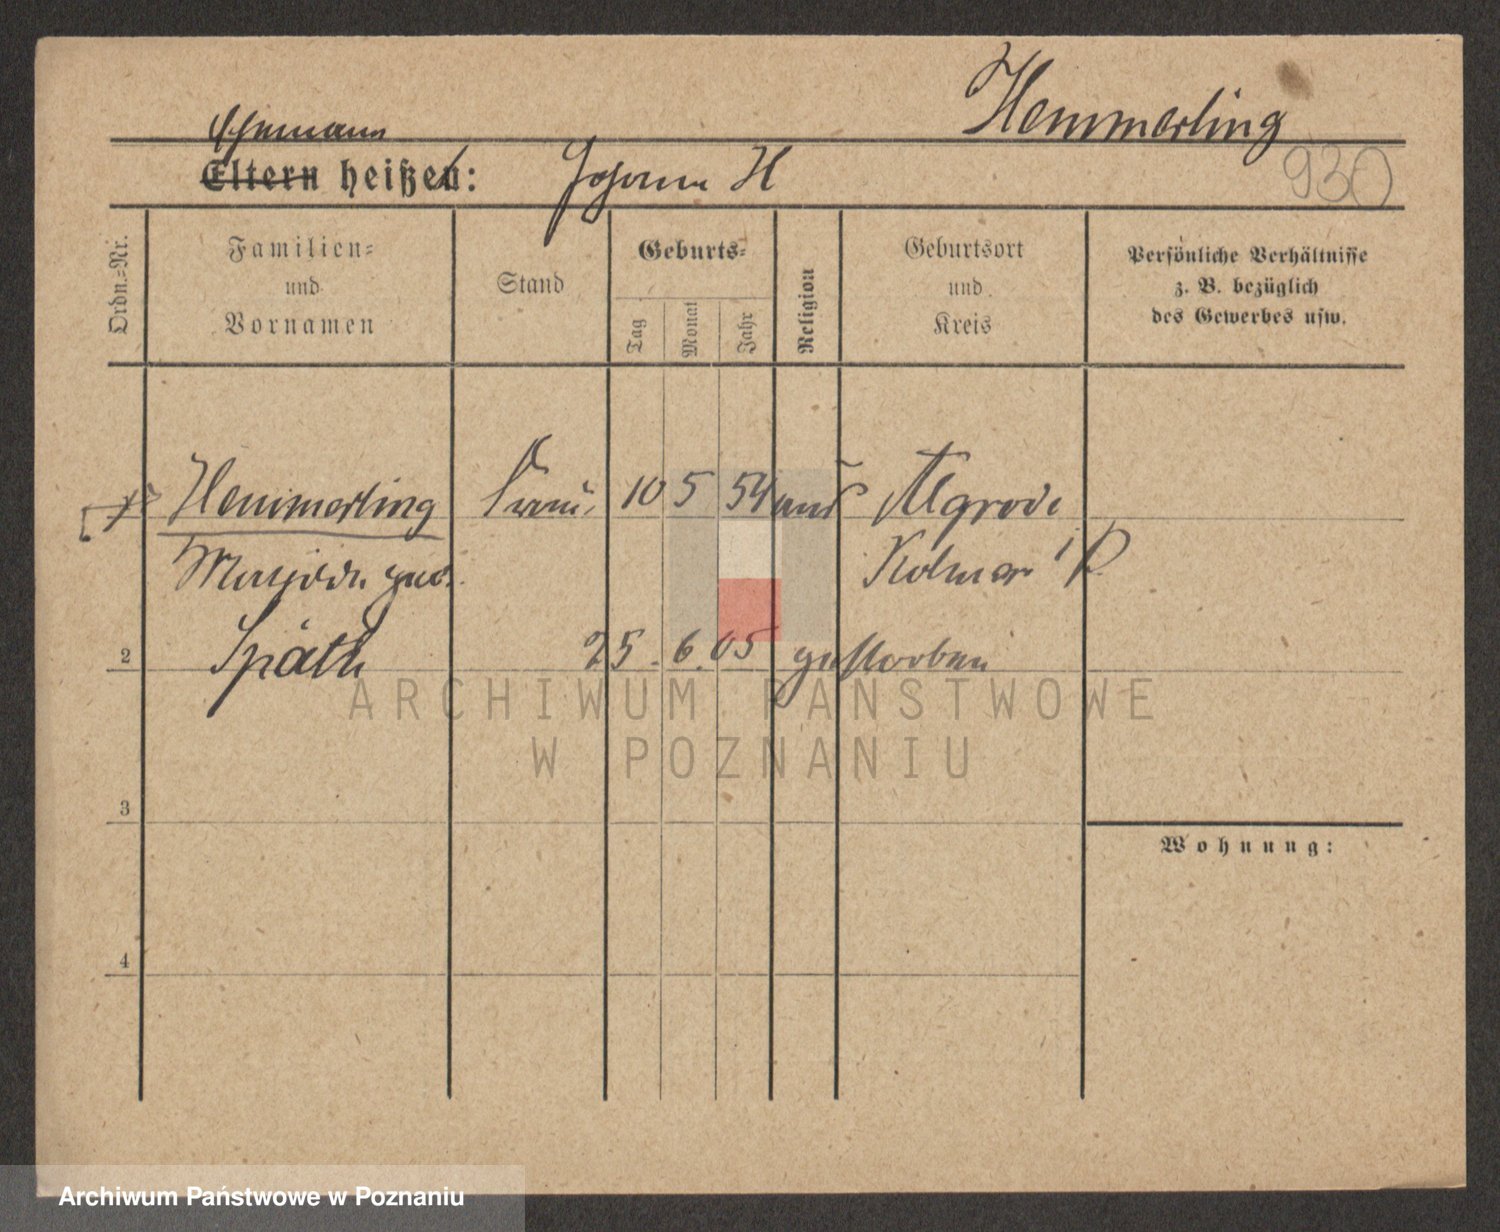 Hemmerling
Ehemann
930
Eltern heißen: Johann H
Ordn.=Nr.
Familien=
und
Vornamen
Stand
Geburts=
Tag
Monat
Jahr
Religion
Geburtsort
und
Kreis
Persönliche Verhältnisse
z. B. bezüglich
des Gewerbes usw.
Hemmerling Frau 10 5 54
Kolmar i P
Mathilde geb.
2 Späth 25. 6. 05 gestorben
ARCHIWUM PAŃSTWOWE
W POZNANIU
3
Wohnung:
4
Archiwum Państwowe w Poznaniu